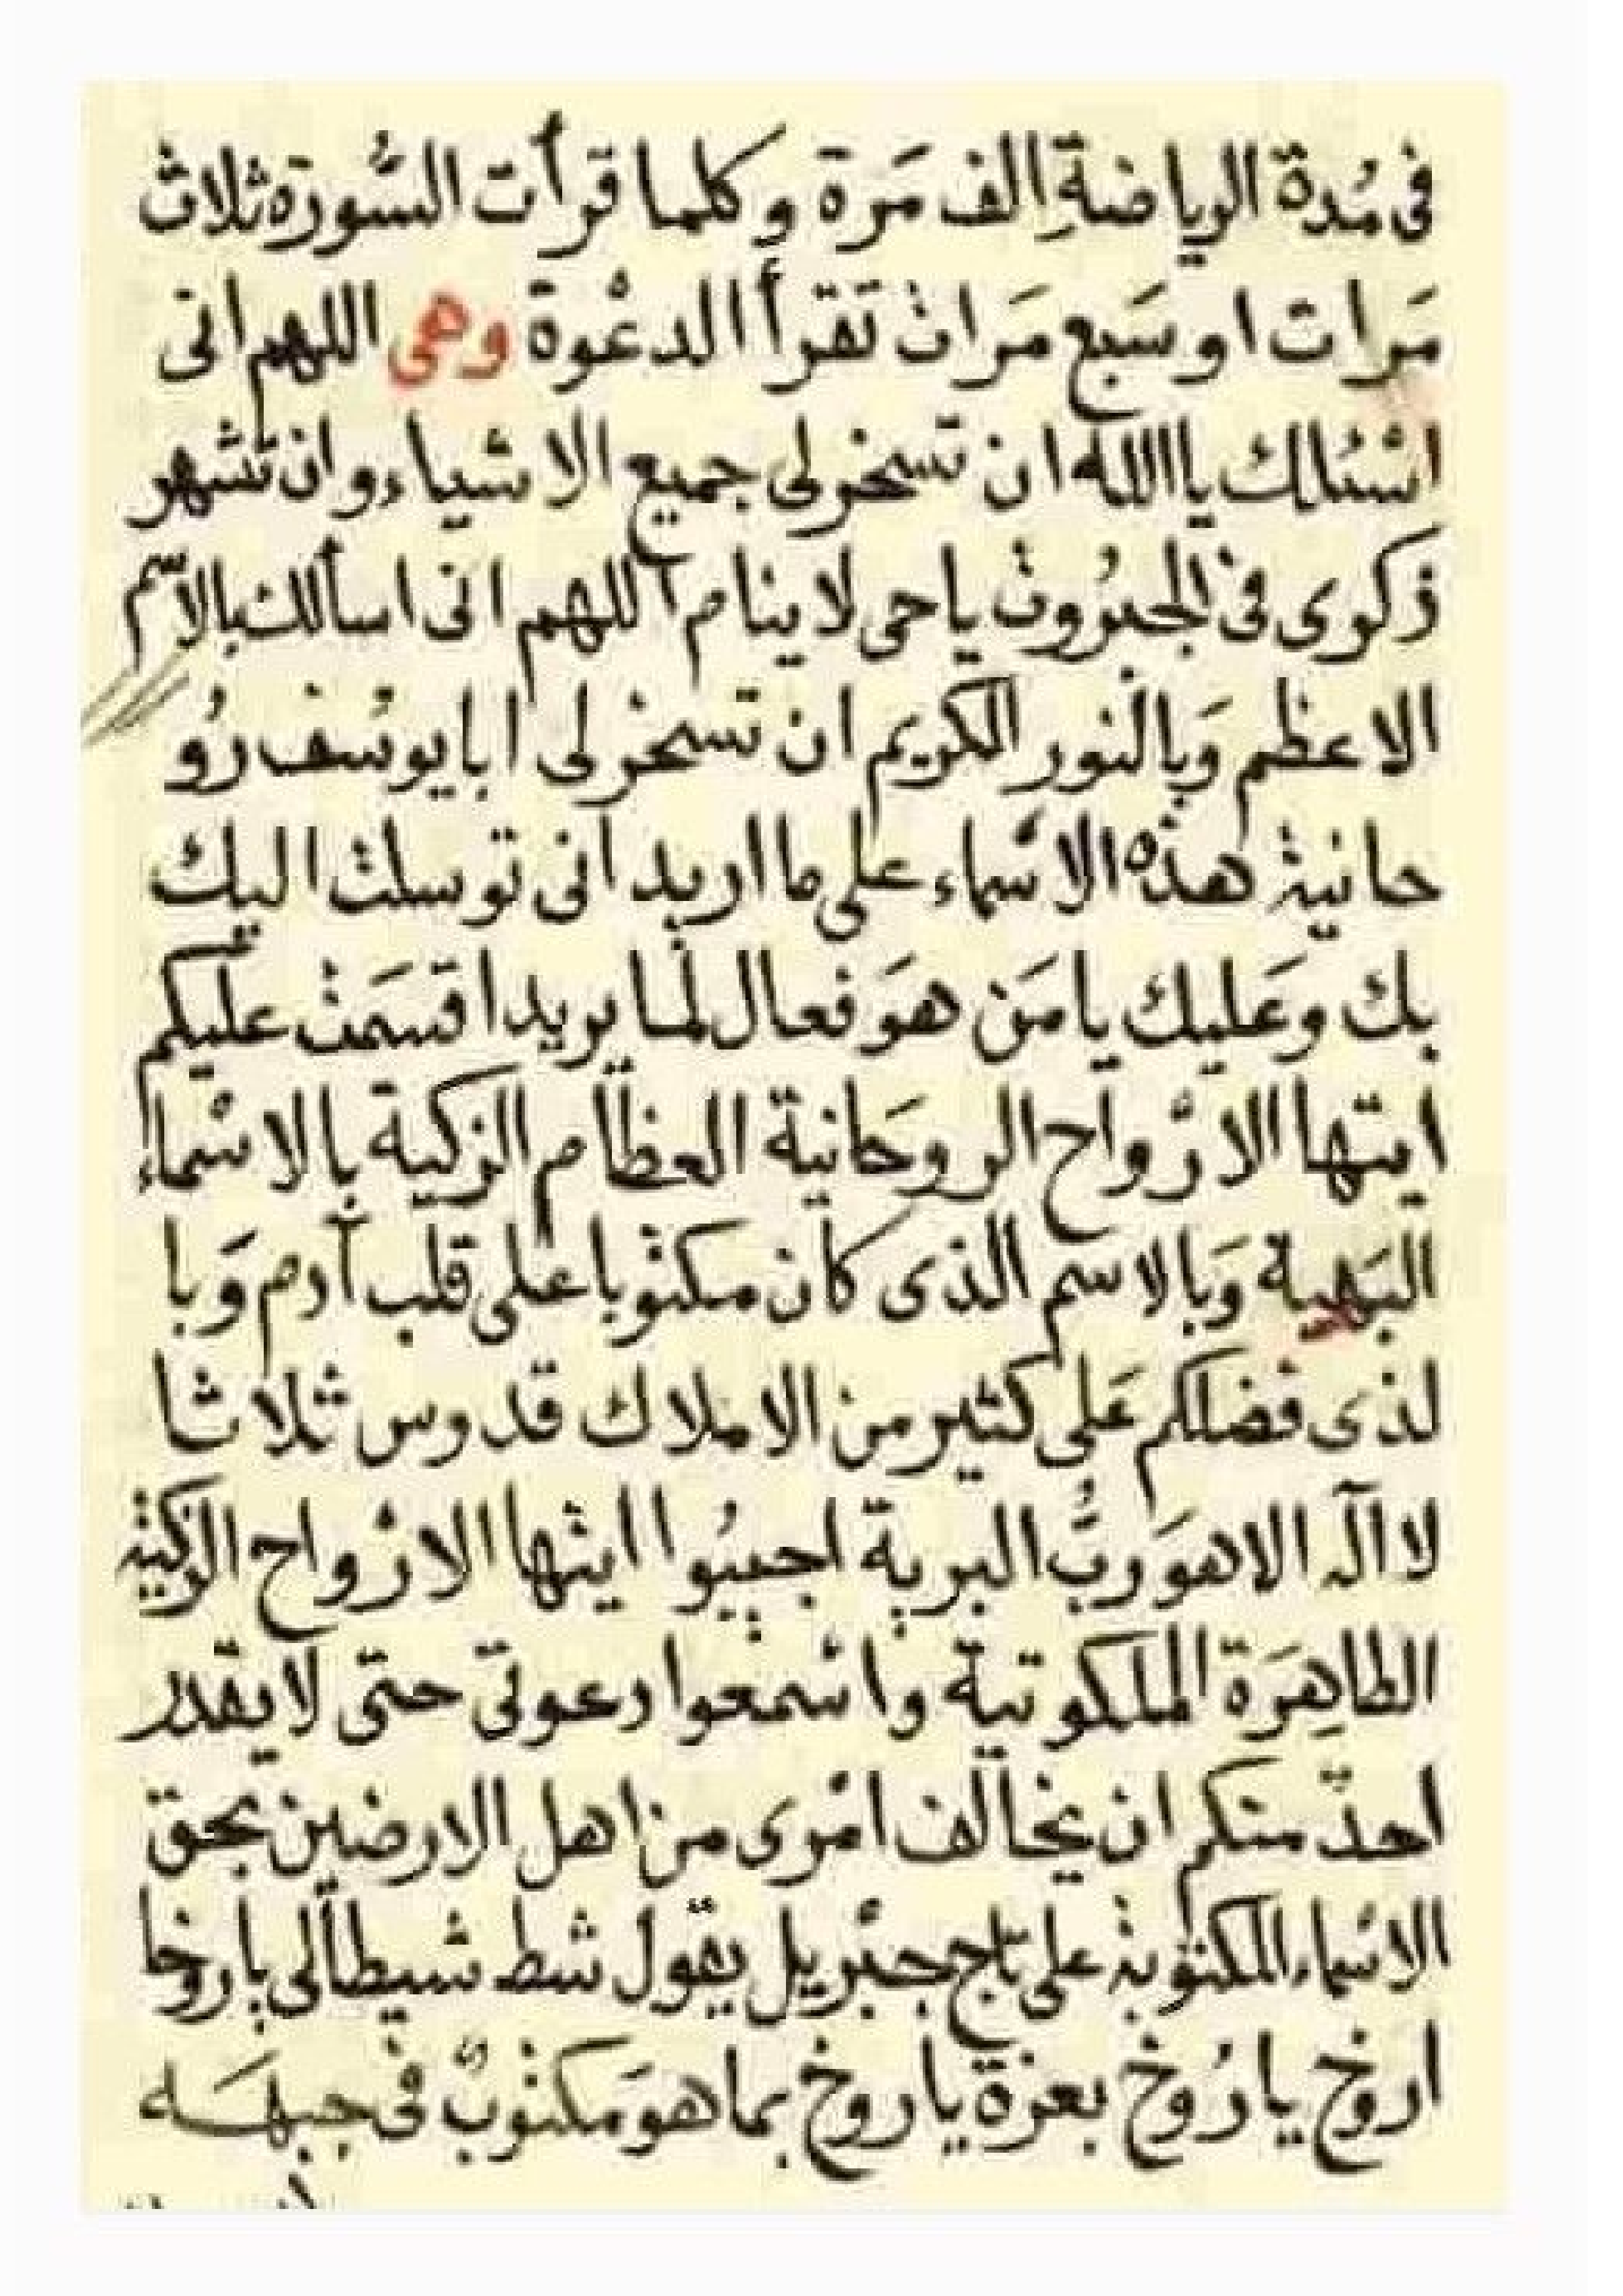 فى مُدة الرياضةِ الف مَرة وكلما قرأت السُّورة ثلاث
مَرات او سَبع مَرات تَقرأ الدعْوة وهى اللهم انى
اسْئلك يا الله ان تسخر لى جميع الاشياء وان تشهر
ذكرى فى الجبرُوت يا حى لا ينام اللهم انى اسألك بالاسم
الاعظم وَبالنور الكريم ان تسخر لى ابا يوسُف رُو
حانية هذه الاسماء على ما اريد انى توسلت اليك
بك وعَليك يا مَن هوَ فعال لما يريد اقسَمت عليكم
ايتها الارْواح الروحَانية العظام الزكية بالاسْماء
البَهية وَبالاسم الذى كان مكتوبا على قلب آدم وَبا
لذى فضلكم عَلى كثير من الاملاك قدوس ثلاثا
لا آله الا هوَ ربُّ البرية اجيبُوا ايتها الارْواح الزكية
الطاهِرَة الملكوتية واسْمعوا دعوتى حتى لا يقدر
احدٌ منكم ان يخالف امْرى من اهل الارضين بحق
الاسْماء المكتوبة على تاج جبْريل يقول شط شيطالى يا روخا
اروخ يا رُوخ بعزة يا روخ بما هوَ مكتوبٌ فى جبهَه